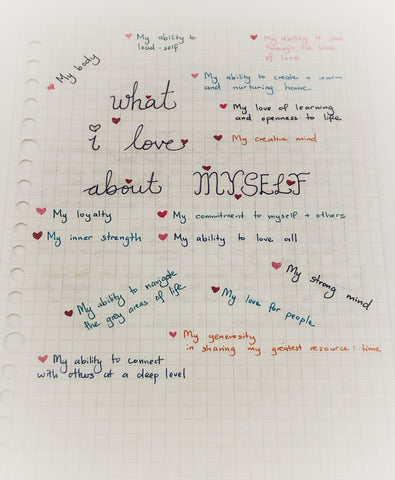 My ability to
lead-self
My ability to see
through the lens of
love
My body
My ability to create a warm
and nurturing home
what
My love of learning
and openness to life
i love
My creative mind
about MYSELF
My loyalty
My commitment to myself + others
My inner strength
My ability to love all
My strong mind
My ability to navigate
the grey areas of life
My love for people
My generosity
in sharing my greatest resource: time
My ability to connect
with others at a deep level